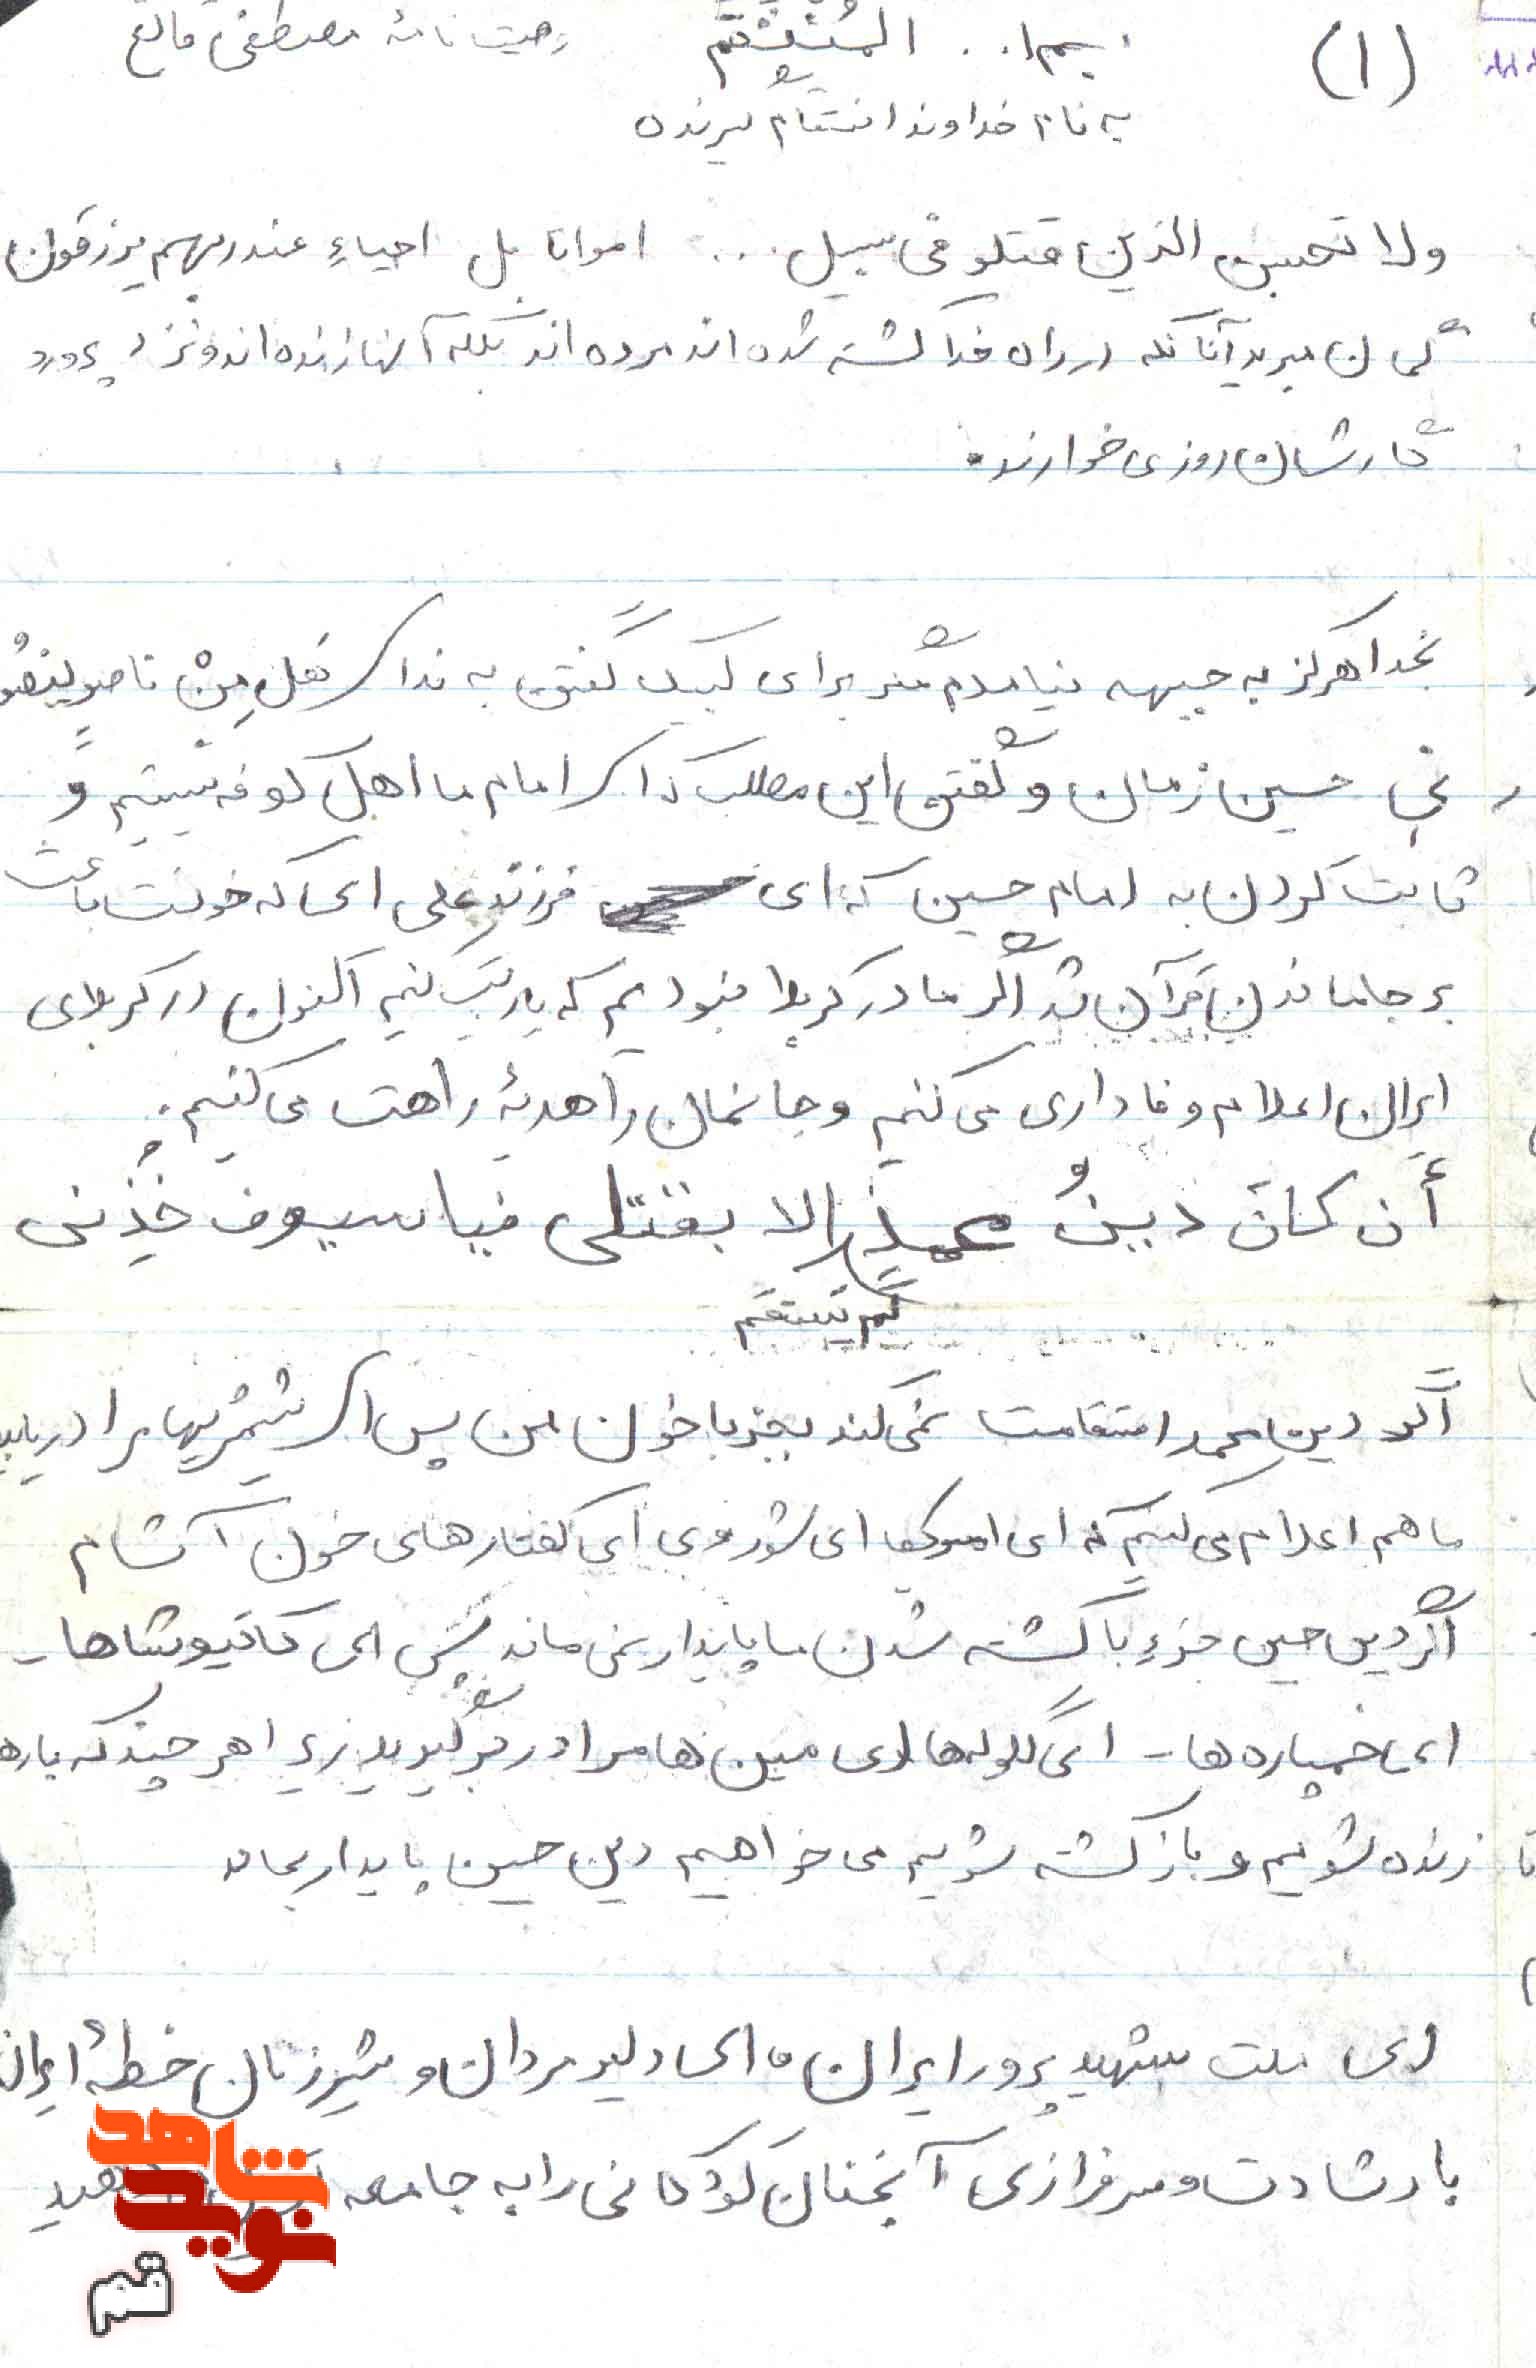 (۱) بسم ا... المُنْتَقَم وصیت نامهٔ مصطفی
به نام خداوند انتقام گیرنده
ولا تحسبن الذین قتلو فی سبیل ... امواتا بل احیاءِ عند ربهم یرزقون
گمان مبرید آنانکه در راه خدا کشته شده اند مرده اند بلکه آنها زنده اند و نزد پرورد
گارشان روزی خوارند.
بخدا هرگز به جبهه نیامدم مگر برای لبیک گفتن به ندای هَل مِنْ ناصرٍ ینصُر
نیِ حسین زمان و گفتن این مطلب که ای امام ما اهل کوفه نیستیم و
ثابت کردن به امام حسین که ای فرزند علی ای که خونت باعث
برجاماندن قرآن شد اگر ما در کربلا نبودیم که یاریت کنیم اکنون در کربلای
ایران اعلام وفاداری می کنیم و جانمان را هدیهٔ راهت می کنیم.
أن کانَ دینُ محمدٍ الا بقتلی فیا سیوف خُذِنی
لَم یَستَقَم
اگر دین محمد استقامت نمی کند بجز با خون من پس ای شمشیرها مرا دریابید
ما هم اعلام می کنیم که ای امریکا ای شوروی ای کفتارهای خون آشام
اگر دین حسین جزء با کشته شدن ما پایدار نمی ماند پس ای کاتیوشاها-
ای خمپاره ها- ای گلوله ها ای مین ها مرا در برگیرید زیرا هر چند که بارها
زنده شویم و باز کشته شویم می خواهیم دین حسین پایدار بماند
ای ملت شهید پرور ایران، ای دلیر مردان و شیرزنان خطهٔ ایران
با رشادت و سرفرازی آنچنان کودکانی را به جامعه
شاهد
نوید
قم